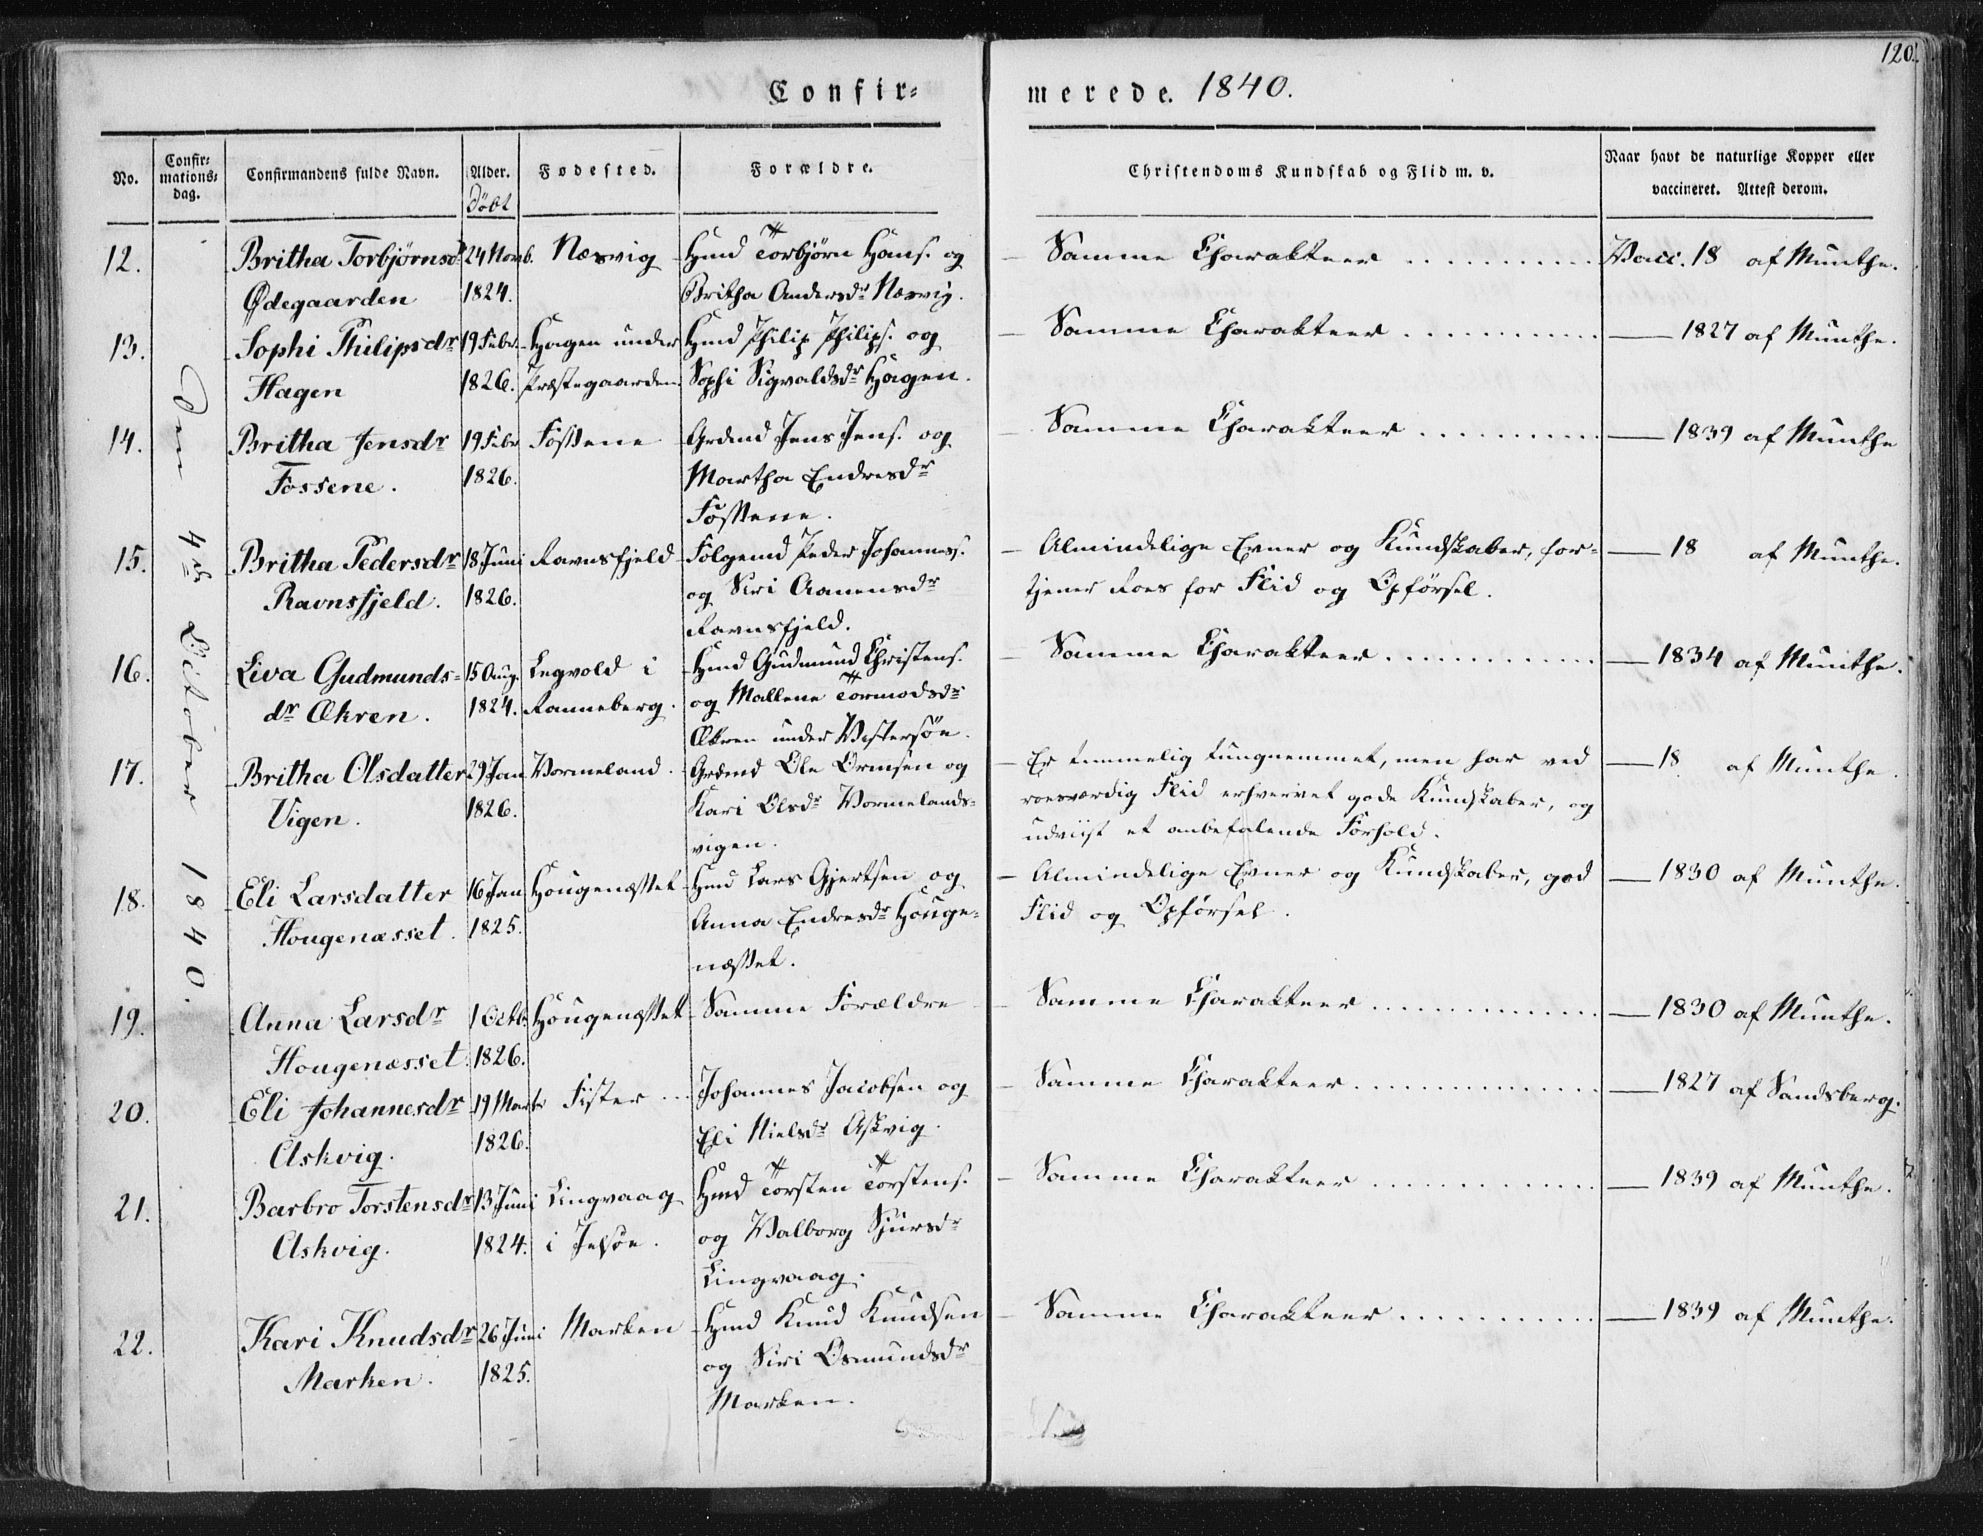 120.
Confir-
merede. 1840.
No.
Confir-
mations-
dag.
Confirmandens fulde Navn.
Alder.
Döbt
Fødested.
Forældre.
Christendoms Kundskab og Flid m. v.
Naar havt de naturlige Kopper eller
vaccineret. Attest derom.
Den 4de October 1840.
12. Britha Torbjørnsd 24 Novb. Næsvig Hmd Torbjörn Hans. og — Samme Charakteer Vacc. 18 af Munthe.
Ødegaarden 1824. Britha Andersdr Næsvig.
13. Sophi Philipsdr 19 Febr. Hagen under Hmd Philip Philips. og — Samme Charakteer — 1827 af Munthe.
Hagen 1826. Præstegaarden. Sophi Sigvaldsdr Hagen.
14. Britha Jensdr 19 Febr Fossene Grdmd Jens Jens. og — Samme Charakteer — 1839 af Munthe
Fossene. 1826. Martha Endresdr
Fossene.
15. Britha Pedersdr 18 Juni Ravnsfjeld Folgemd Peder Johanness. — Almindelige Evner og Kundskaber, for- — 18 af Munthe.
Ravnsfjeld. 1826. og Siri Aanensdr tjener Roes for Flid og Opförsel.
Ravnsfjeld.
16. Liva Gudmunds- 15 Aug. Legvold i Hmd Gudmund Christens. — Samme Charakteer — 1834 af Munthe.
dr Økren. 1824. Ranneberg. og Mallene Tormodsdr
Økren under Vestersöe.
17. Britha Olsdatter 29 Jan Vormeland. Grdmd Ole Ormsen og — Er temmelig tungnemmet, men har ved — 18 af Munthe.
Vigen. 1826. Kari Olsdr Vormelands- roesværdig Flid erhvervet gode Kundskaber, og
vigen. udviist et anbefalende Forhold.
18. Eli Larsdatter 16 Jan Hougenæsset Hmd Lars Gjertsen og — Almindelige Evner og Kundskaber, god — 1830 af Munthe.
Hougenæsset. 1825. Anna Endresdr Houge- Flid og Opförsel.
næsset.
19. Anna Larsdr 1 Octb. Hougenæsset Samme Forældre — Samme Charakteer — 1830 af Munthe.
Hougenæsset. 1826.
20. Eli Johannesdr 19 Marts Fister Johannes Jacobsen og — Samme Charakteer — 1827 af Sandsberg.
Askvig. 1826. Eli Nielsdr Askvig.
21. Barbro Torstensdr 13 Juni Lingvaag Hmd Torsten Torstens. — Samme Charakteer — 1839 af Munthe.
Askvig. 1824. i Jelsöe. og Valborg Sjursdr
Lingvaag.
22. Kari Knudsdr 26 Juni Marken Hmd Knud Knudsen — Samme Charakteer — 1839 af Munthe.
Marken. 1825. og Siri Osmundsdr
Marken.